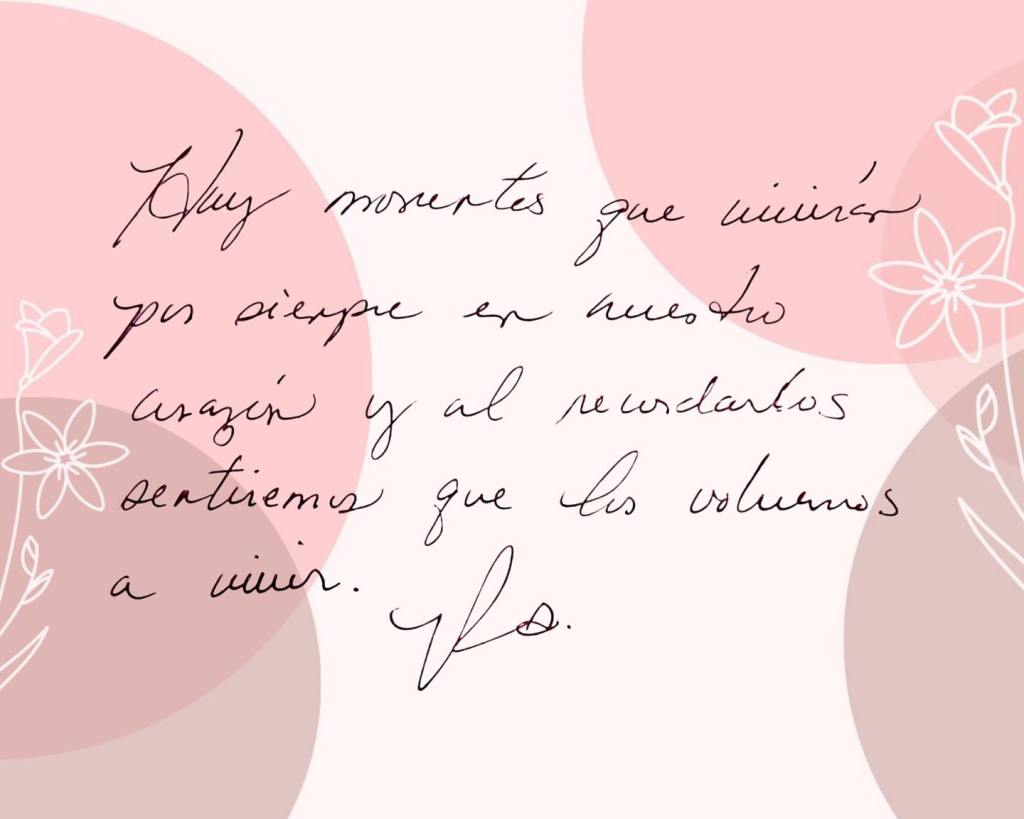 Hay momentos que vivirán
por siempre en nuestro
corazón y al recordarlos
sentiremos que los volvemos
a vivir.